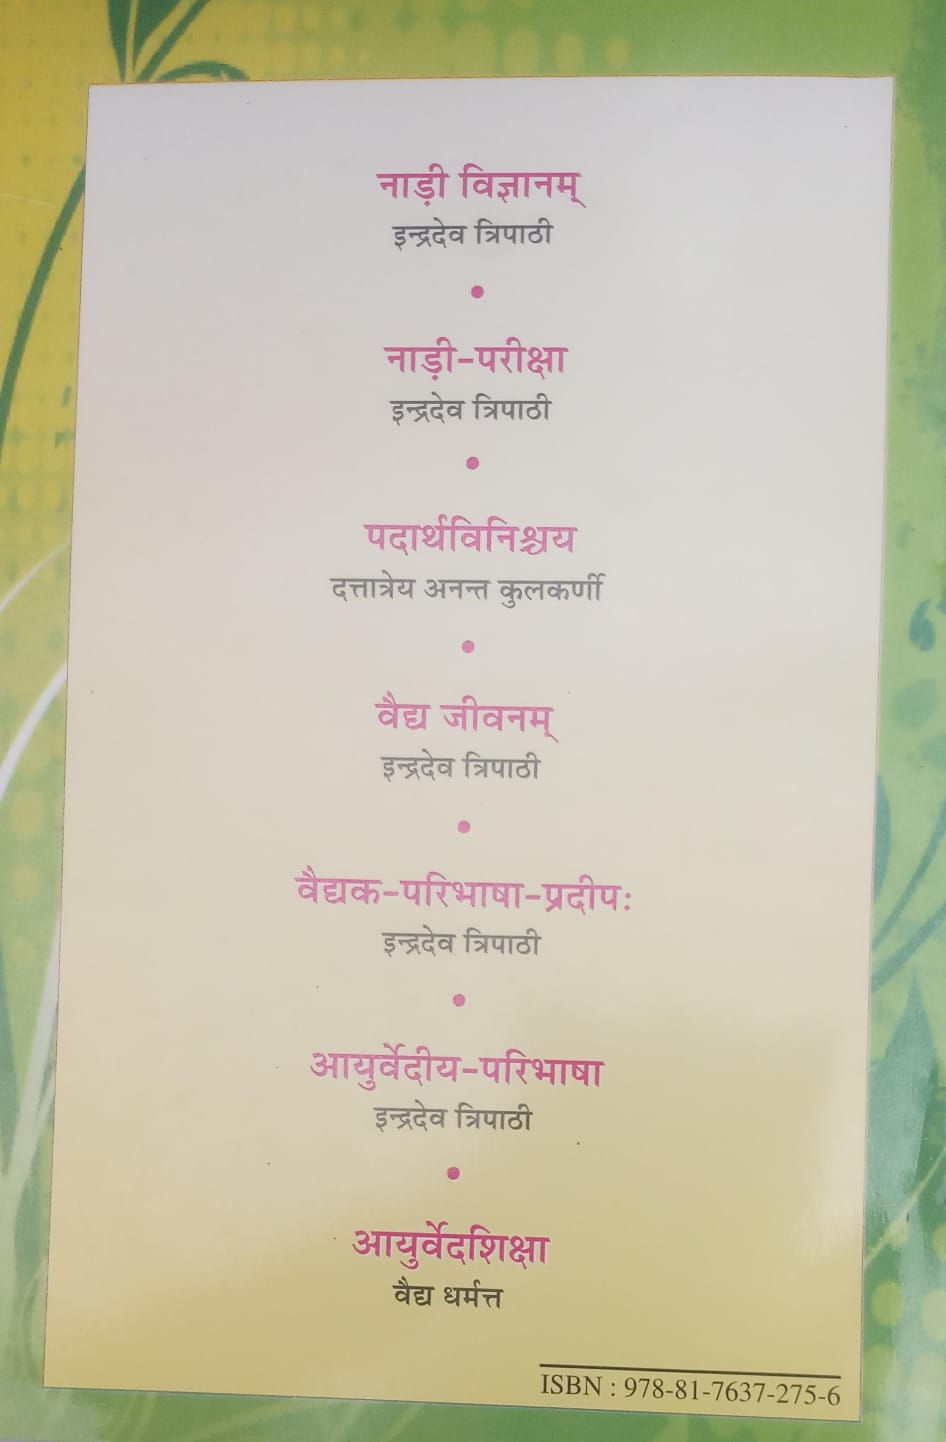 नाड़ी विज्ञानम्
इन्द्रदेव त्रिपाठी
नाड़ी-परीक्षा
इन्द्रदेव त्रिपाठी
पदार्थविनिश्चय
दत्तात्रेय अनन्त कुलकर्णी
वैद्य जीवनम्
इन्द्रदेव त्रिपाठी
वैद्यक-परिभाषा-प्रदीपः
इन्द्रदेव त्रिपाठी
आयुर्वेदीय-परिभाषा
इन्द्रदेव त्रिपाठी
आयुर्वेदशिक्षा
वैद्य धर्मत्त
ISBN : 978-81-7637-275-6